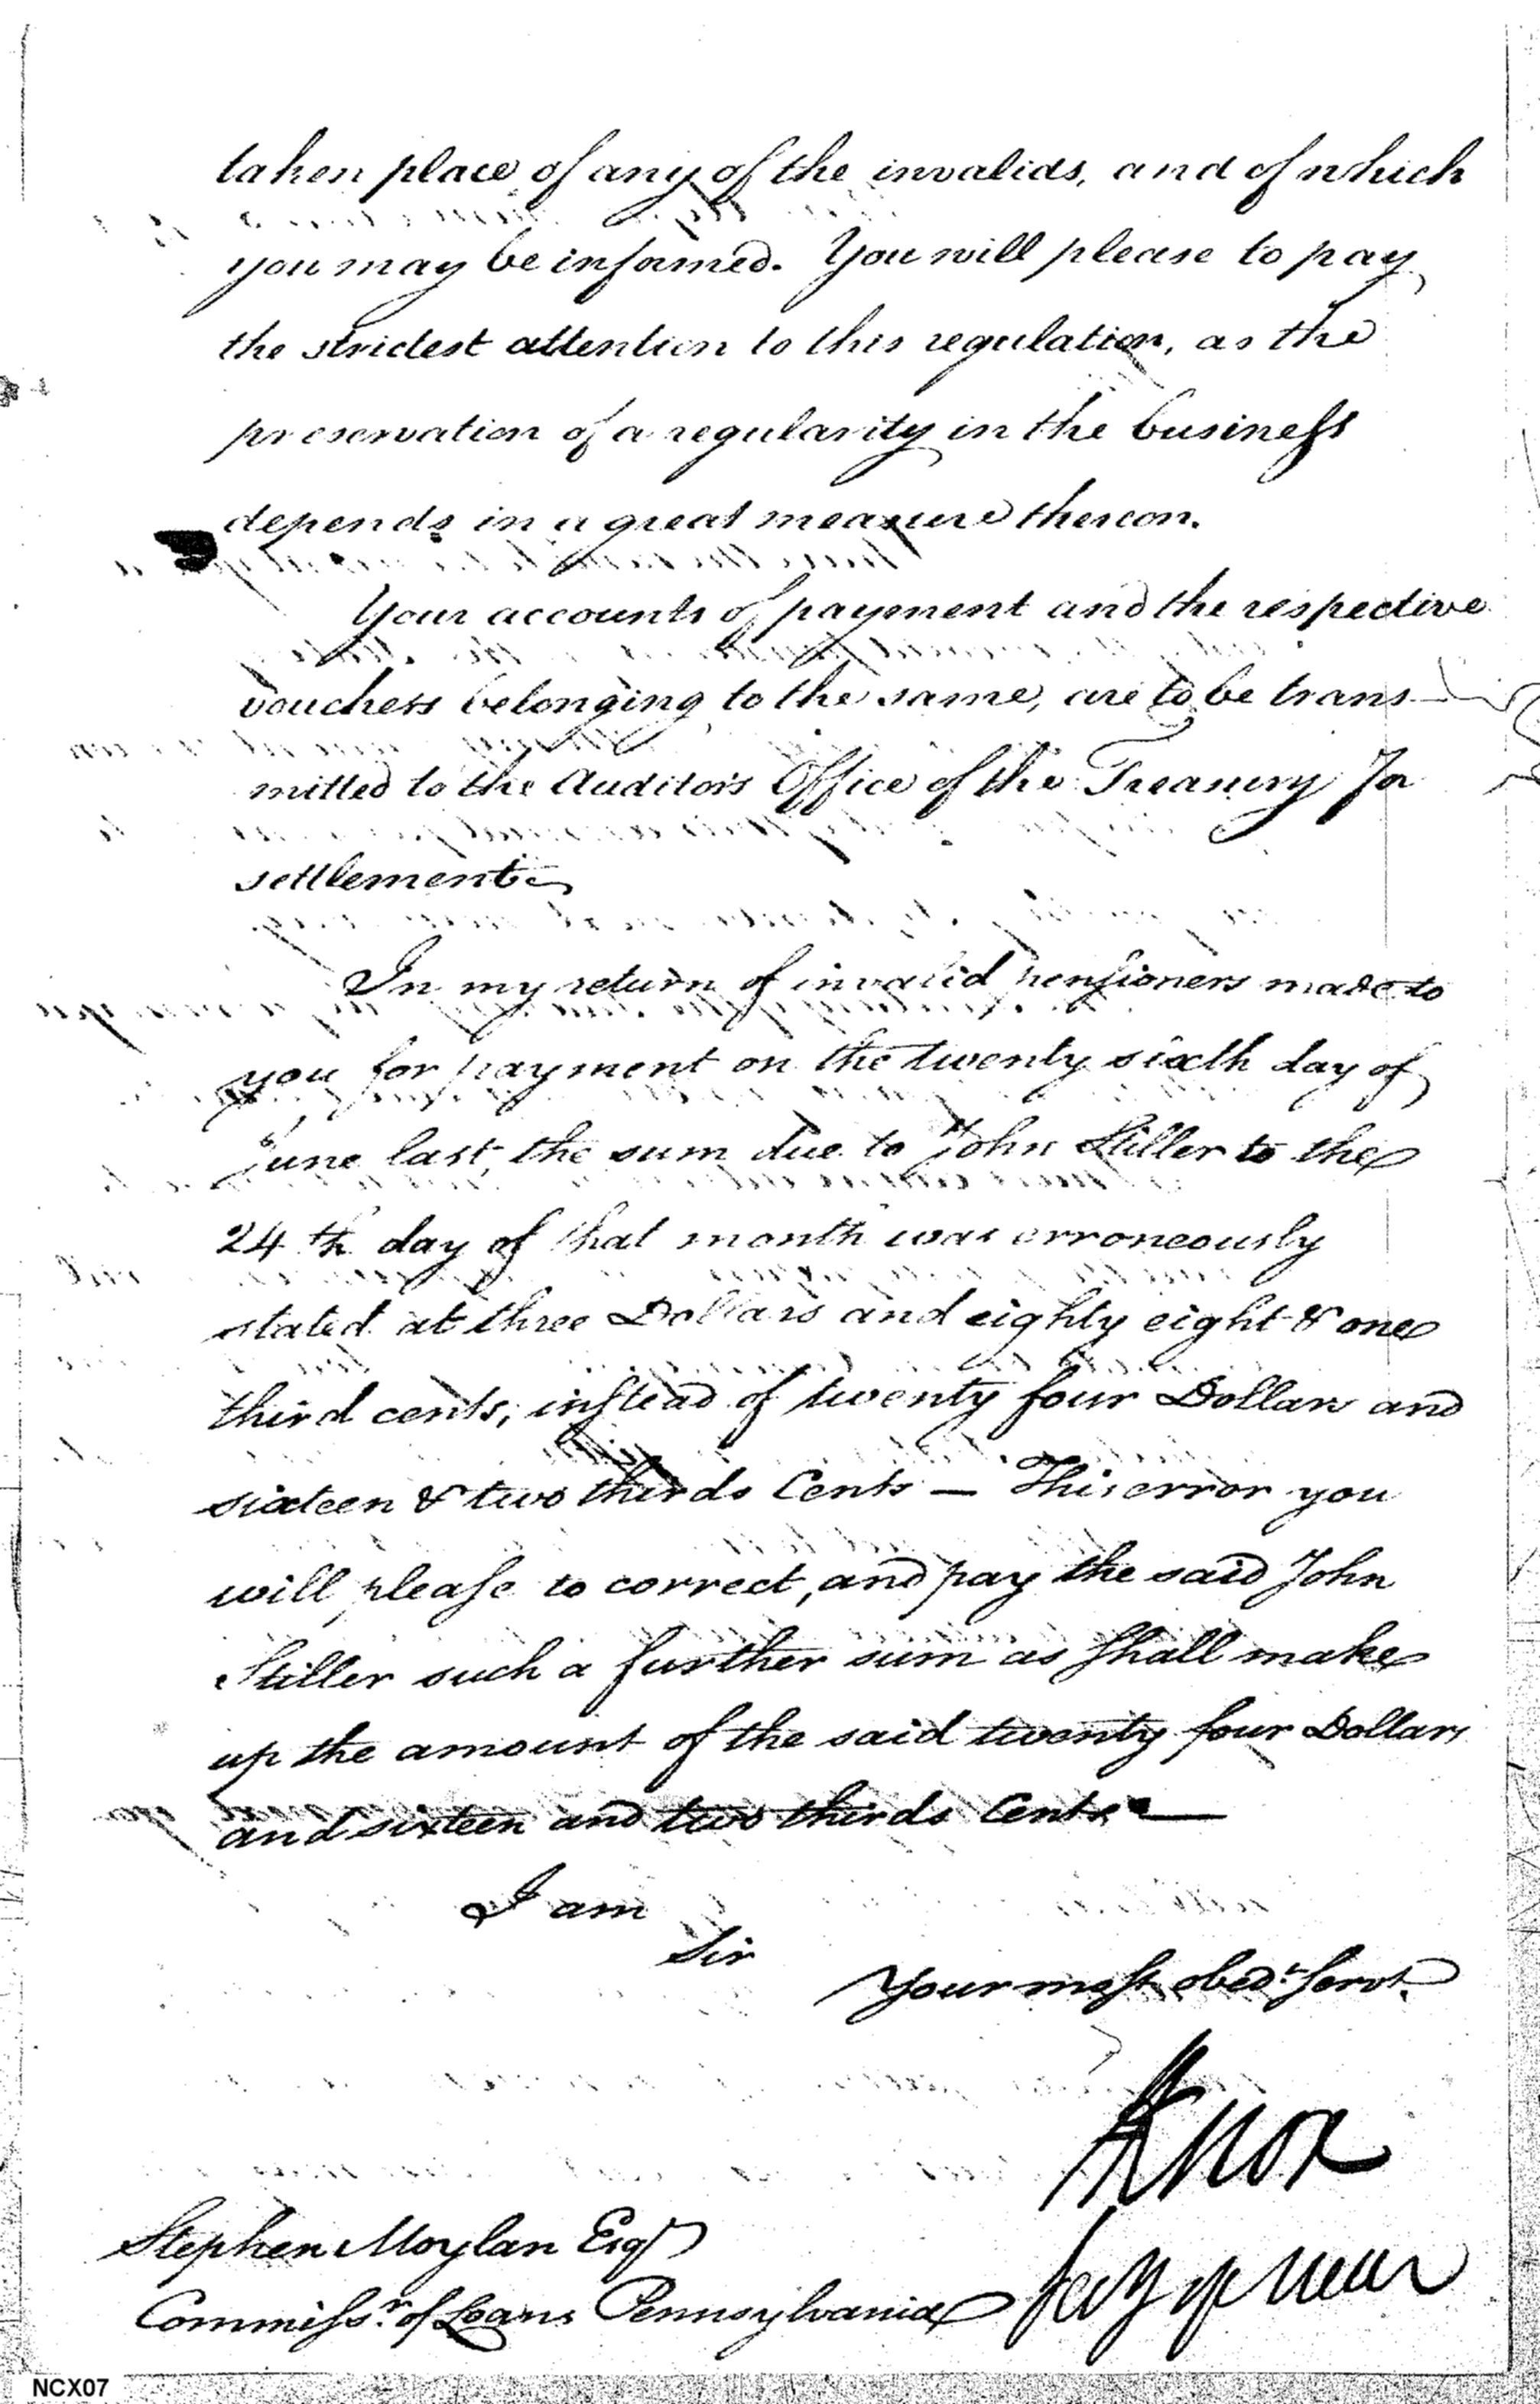 taken place of any of the invalids, and of which
you may be informed. You will please to pay
the strictest attention to this regulation, as the
preservation of a regularity in the business
depends in a great measure thereon.
Your accounts of payment and the respective
vouchers belonging to the same, are to be trans-
mitted to the Auditors Office of the Treasury for
settlement.
In my return of invalid pensioners made to
you for payment on the twenty sixth day of
June last, the sum due to John Stiller to the
24th day of that month was erroneously
stated at three Dollars and eighty eight & one
third cents, instead of twenty four Dollars and
sixteen & two thirds Cents — This error you
will please to correct, and pay the said John
Stiller such a further sum as shall make
up the amount of the said twenty four Dollars
and sixteen and two thirds Cents. —
I am
Sir
Your most obedt Servt.
HKnox
Secy of War
Stephen Moylan Esqr
Commissr. of Loans Pennsylvania
NCX07